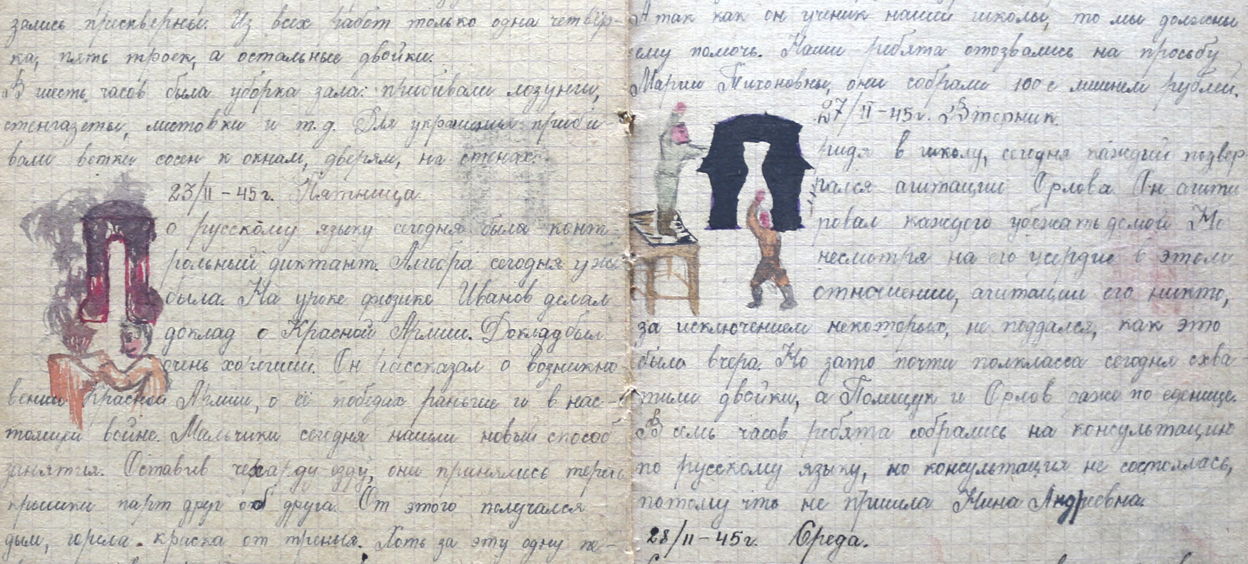 зались прискверны. Из всех работ только одна четвёр-
ка, пять троек, а остальные двойки.
В шесть часов была уборка зала: прибивали лозунги,
стенгазеты, листовки и т.д. Для украшения приби
вали ветки сосен к окнам, дверям, на стенах.
23/II-45г. Пятница.
П
о русскому языку сегодня была конт-
рольный диктант. Алгебра сегодня уже
была. На уроке физике Иванов делал
доклад о Красной Армии. Доклад был
очень хороший. Он рассказал о возникно
вении Красной Армии, о её победах раньше и в нас-
тоящей войне. Мальчики сегодня нашли новый способ
занятия. Оставив чехарду езду, они принялись тереть
крышки парт друг об друга. От этого получался
дым, горела краска от трения. Хоть за эту одну пе-
А так как он ученик нашей школы, то мы должны
ему помочь. Наши ребята отозвались на просьбу
Марии Тихоновны, они собрали 100 с лишнем рублей.
27/II-45г. Вторник.
П
ридя в школу, сегодня каждый подвер
гался агитации Орлова. Он агити
ровал каждого уезжать домой. Но
несмотря на его усердие в этом
отношении, агитации его никто,
за исключением некоторых, не поддался, как это
было вчера. Но зато почти полкласса сегодня схва-
тили двойки, а Полещук и Орлов даже по еденице.
В семь часов ребята собрались на консультацию
по русскому языку, но консультация не состоялась,
потому что не пришла Нина Андреевна.
28/II-45г. Среда.